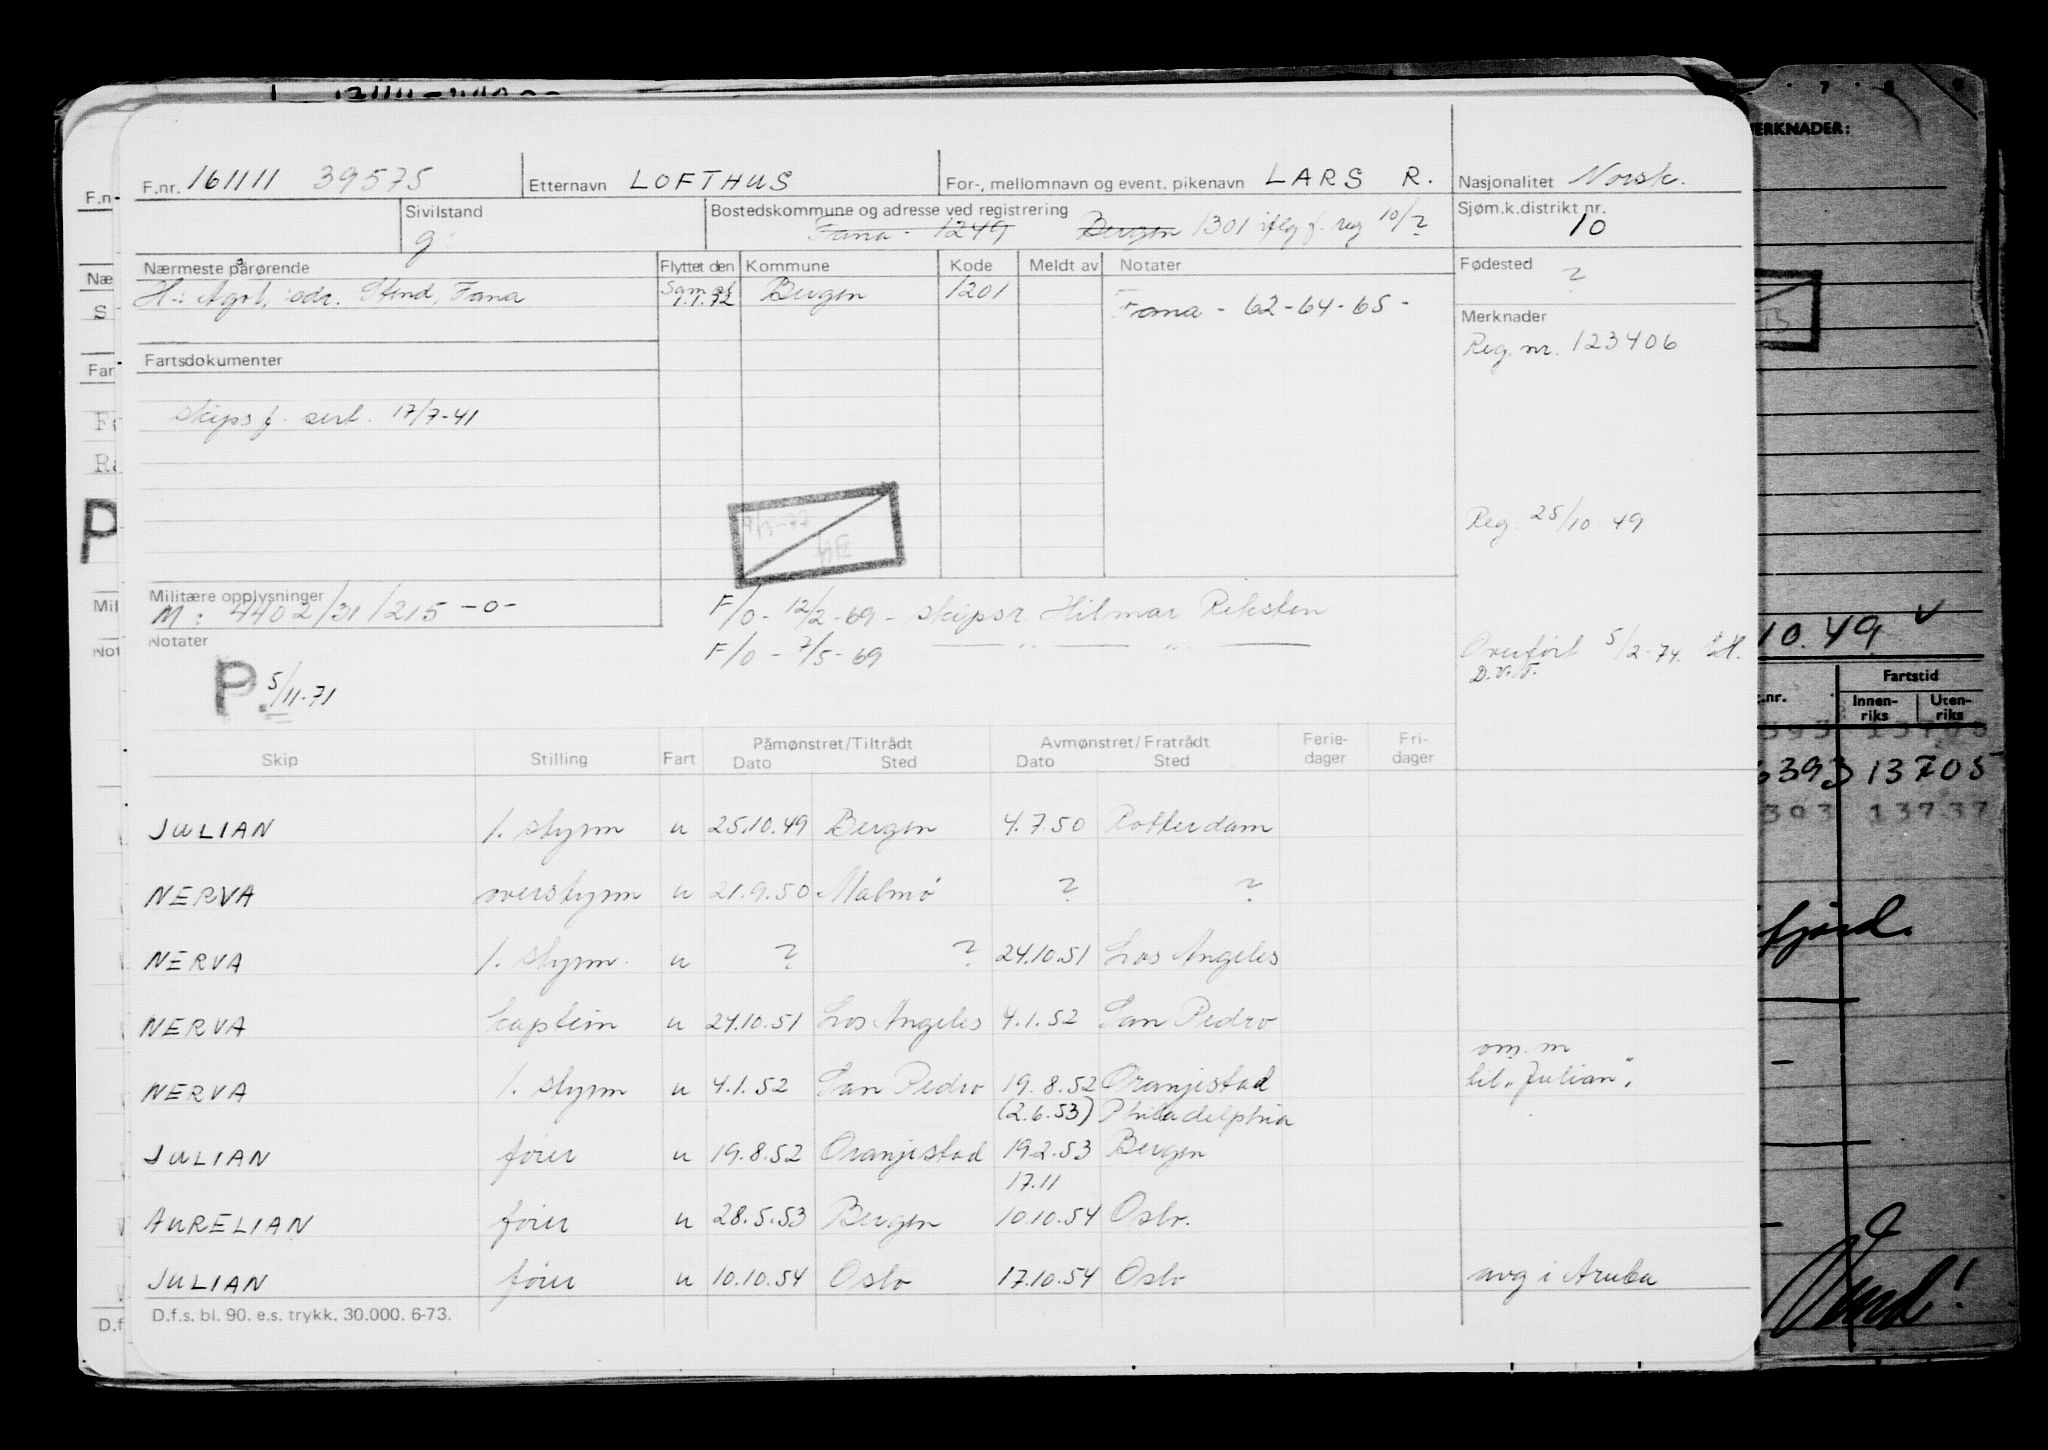 F.nr. 161111 39575 Etternavn LOFTHUS For-, mellomnavn og event. pikenavn LARS R. Nasjonalitet Norsk.
Sivilstand g Bostedskommune og adresse ved registrering Fana - 1249 Bergen 1301 iflg f. reg 10/? Sjøm.k.distrikt nr. 10
Nærmeste pårørende Flyttet den Kommune Kode Meldt av Notater Fødested ?
H: Agot, adr. Stend, Fana Sam. 1.1.72 Bergen 1201 Fana - 62-64-65 -
Merknader
Reg. nr. 123406
Fartsdokumenter
Skipsf. sert. 17/7-41
Reg. 25/10-49
Militære opplysninger
M: 4402/31/215 -o-
F/O - 12/2-69 - skipsr. Hilmar Reksten
Notater
F/O - 7/5-69 — " — " —
Overført 5/2-74.
D.V.F.
P. 5/11-71
Skip Stilling Fart Påmønstret/Tiltrådt Dato Sted Avmønstret/Fratrådt Dato Sted Ferie-dager Fri-dager
JULIAN 1. styrm u 25.10.49 Bergen 4.7.50 Rotterdam
NERVA overstyrm u 21.9.50 Malmö ? ?
NERVA 1. styrm. u ? ? 24.10.51 Los Angeles
NERVA kaptein u 24.10.51 Los Angeles 4.1.52 San Pedro
NERVA 1. styrm u 4.1.52 San Pedro 19.8.52 Oranjestad om. m til "Julian".
(2.6.53) Philadelphia
JULIAN fører u 19.8.52 Oranjestad 19.2.53 Bergen
17.11
AURELIAN fører u 28.5.53 Bergen 10.10.54 Oslo.
JULIAN fører u 10.10.54 Oslo 17.10.54 Oslo avg i Aruba
D.f.s. bl. 90. e.s. trykk. 30.000. 6-73.
MERKNADER:
10.49
Fartstid
Innen-riks Uten-riks
6393 13705
393 13737
fjord.
Vend!